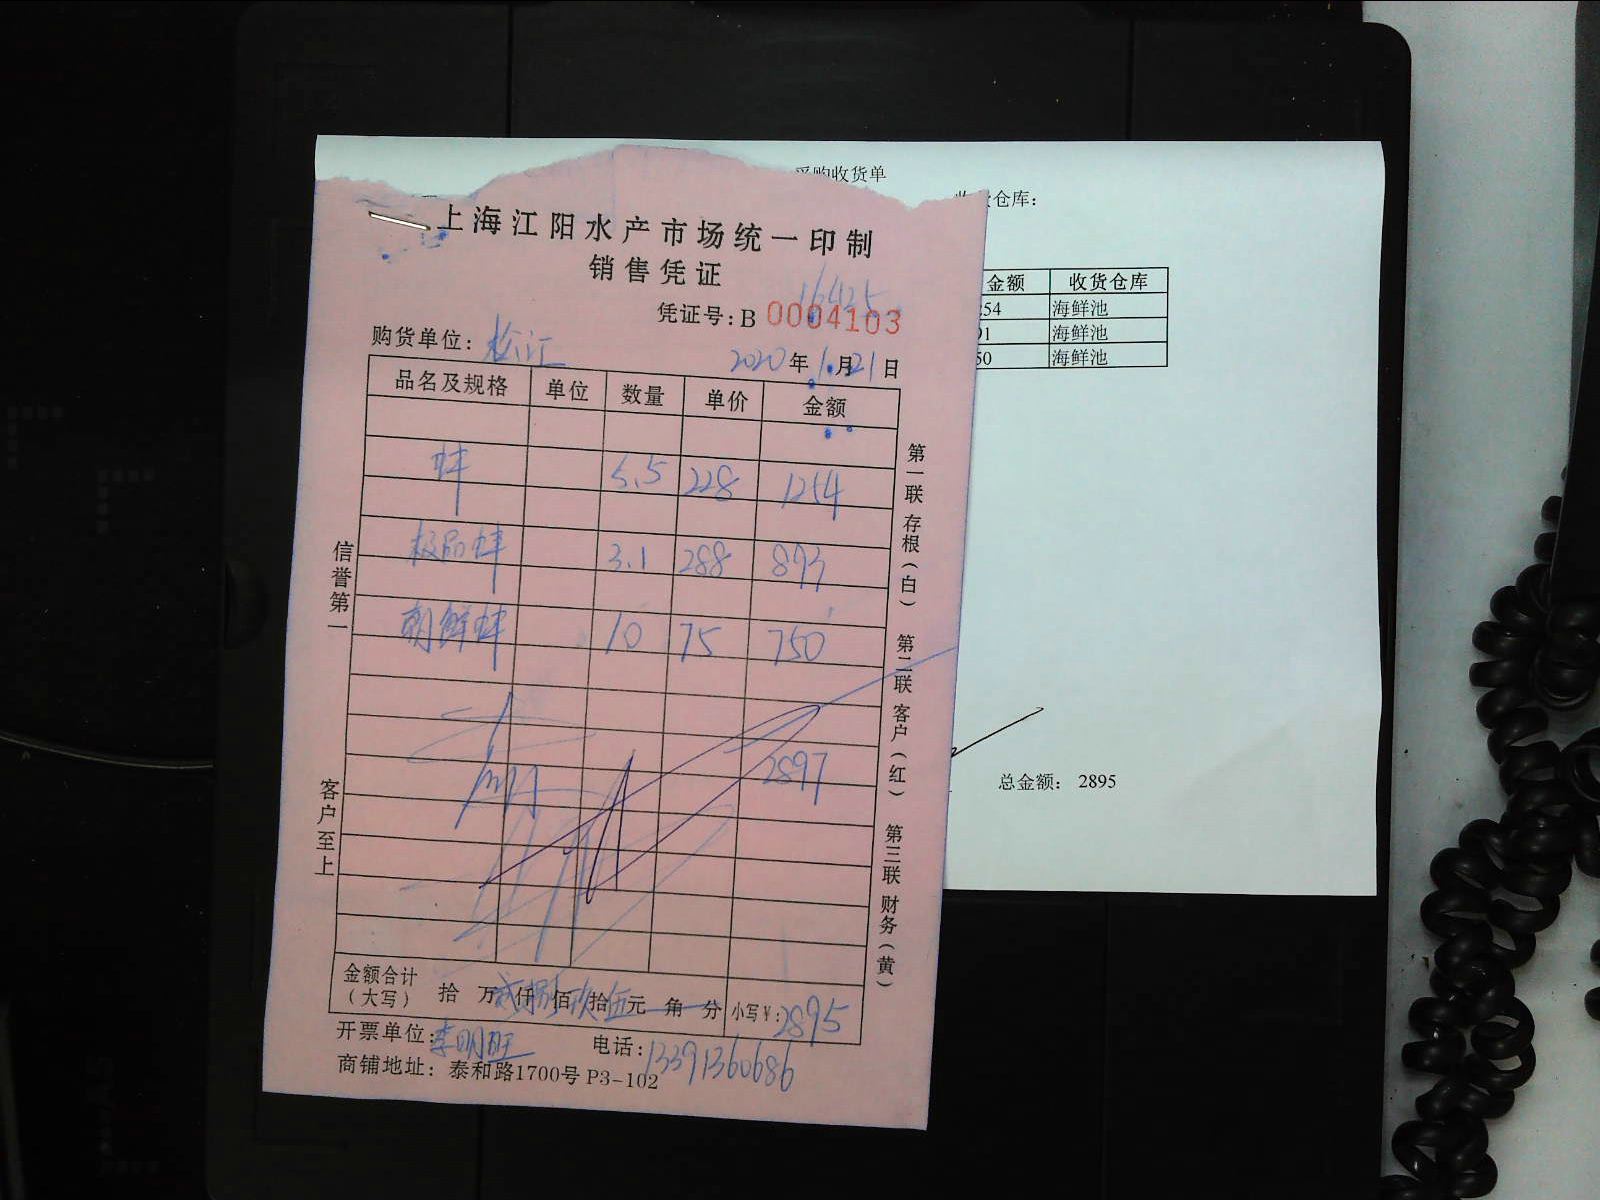 采购收货单
收货仓库：
金额 收货仓库
254 海鲜池
91 海鲜池
50 海鲜池
总金额： 2895
上海江阳水产市场统一印制
销售凭证
16425
凭证号：B 0004103
购货单位：松江
2020年1月21日
品名及规格 单位 数量 单价 金额
蚌 5.5 228 1254
极品蚌 3.1 288 893
朝鲜蚌 10 75 750
2897
金额合计（大写） 拾 万 贰仟捌佰玖拾伍元 角 分 小写￥：2895
开票单位：李明旺 电话：13391360686
商铺地址：泰和路1700号 P3-102
信誉第一
客户至上
第一联 存根（白） 第二联 客户（红） 第三联 财务（黄）